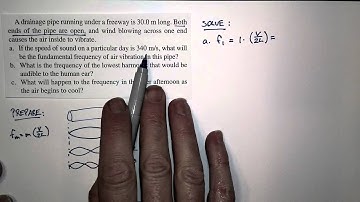 A drainage pipe running under a freeway is 30.0 m long. Both
ends of the pipe are open, and wind blowing across one end
causes the air inside to vibrate.
a. If the speed of sound on a particular day is 340 m/s, what will
be the fundamental frequency of air vibration in this pipe?
b. What is the frequency of the lowest harmonic that would be
audible to the human ear?
c. What will happen to the frequency in the later afternoon as
the air begins to cool?
PREPARE:
fm = m (v/2L)
SOLVE:
a. f1 = 1 · (v/2L) =